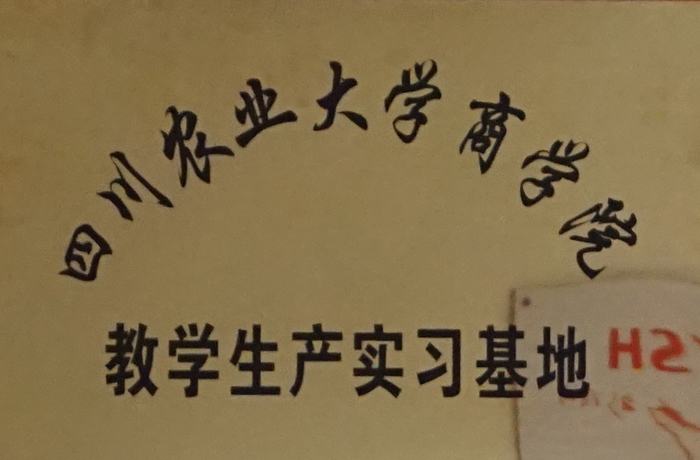 四川农业大学商学院
教学生产实习基地